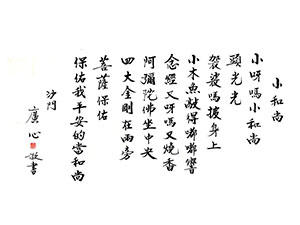 小和尚
小呀嗎小和尚
頭光光
袈裟嗎披身上
小木魚敲得嘟嘟響
念經又呀嗎又燒香
阿彌陀佛坐中央
四大金剛在兩旁
菩薩保佑
保佑我平安的當和尚
沙門
廣心
敬書